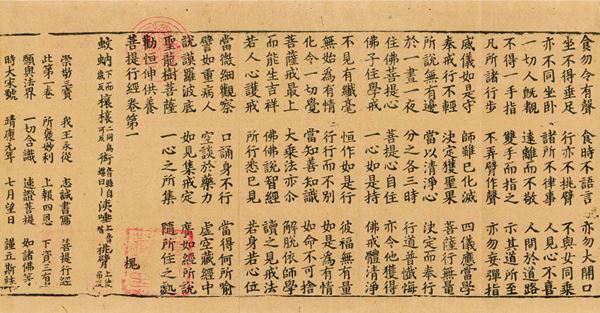 食勿令有聲 食時不語言 亦勿大開口
坐不得垂足 行亦不挑臂 不與女同乘
亦不同坐卧 諸所不律事 人見心不喜
一切人旣覩 遠離而不敬 人問於道路
不得一手指 雙手而指之 示其道所至
凡所諸行步 不弄臂作聲 亦勿妄彈指
威儀如是守 師雖已化滅 四儀應當學
奉戒行不輕 決定獲聖果 菩薩行無量
所說無有邊 當以清淨心 決定而奉行
於一晝一夜 分之各三時 行道普懺悔
住佛菩提心 菩提心自住 亦令他獲得
佛子住學戒 佛戒體清淨
不見有纖毫 恒作如是行 彼福無有量
無始為有情 行行而不別 如是為有情
化令一切覺 當知善知識 如命不可捨
菩薩戒最上 大乘法亦尒 解脫依師學
而能生吉祥 佛佛說智經 讀之見戒法
若人心護戒 所行悉已見 若身若心位
當微細觀察 口誦身不行 當得何所喻
譬如重病人 空談於藥力 虛空藏經中
說謨羅波底 如見集戒定 廣如經所說
聖龍樹菩薩 一心之所集 隨所住之處
勸恒伸供養
菩提行經卷第一 槐
蚊蚋
崇敬三寶 我王永從 志誠書寫 菩提行經
此第一卷 所褒妙利 上報四恩 下資三有
願與法界 一切含識 速證菩提 如諸佛等
時大宋號 靖康元年 七月望日 謹立斯誌